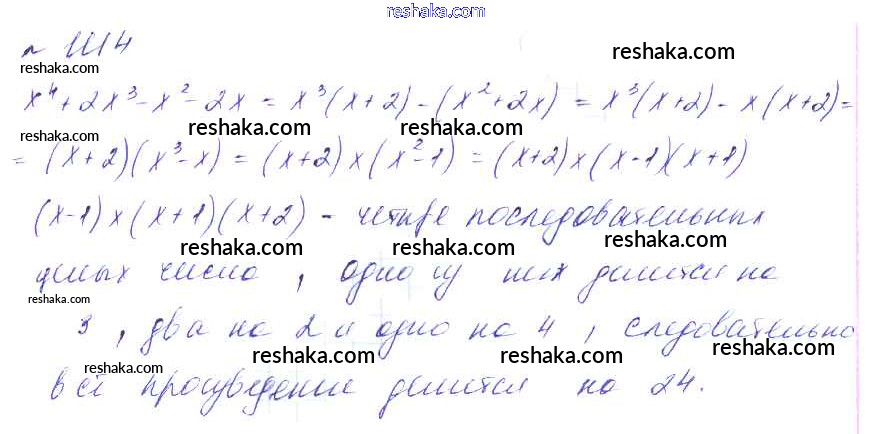 reshaka.com
№ 1114
reshaka.com
reshaka.com
x⁴ + 2x³ - x² - 2x = x³(x+2) - (x²+2x) = x³(x+2) - x(x+2) =
reshaka.com
reshaka.com
= (x+2)(x³-x) = (x+2)x(x²-1) = (x+2)x(x-1)(x+1)
reshaka.com
(x-1)x(x+1)(x+2) - четыре последовательных
reshaka.com
reshaka.com
целых числа, одно из них делится на
reshaka.com
3, два на 2 и одно на 4, следовательно
reshaka.com
reshaka.com
всё произведение делится на 24.
reshaka.com
reshaka.com